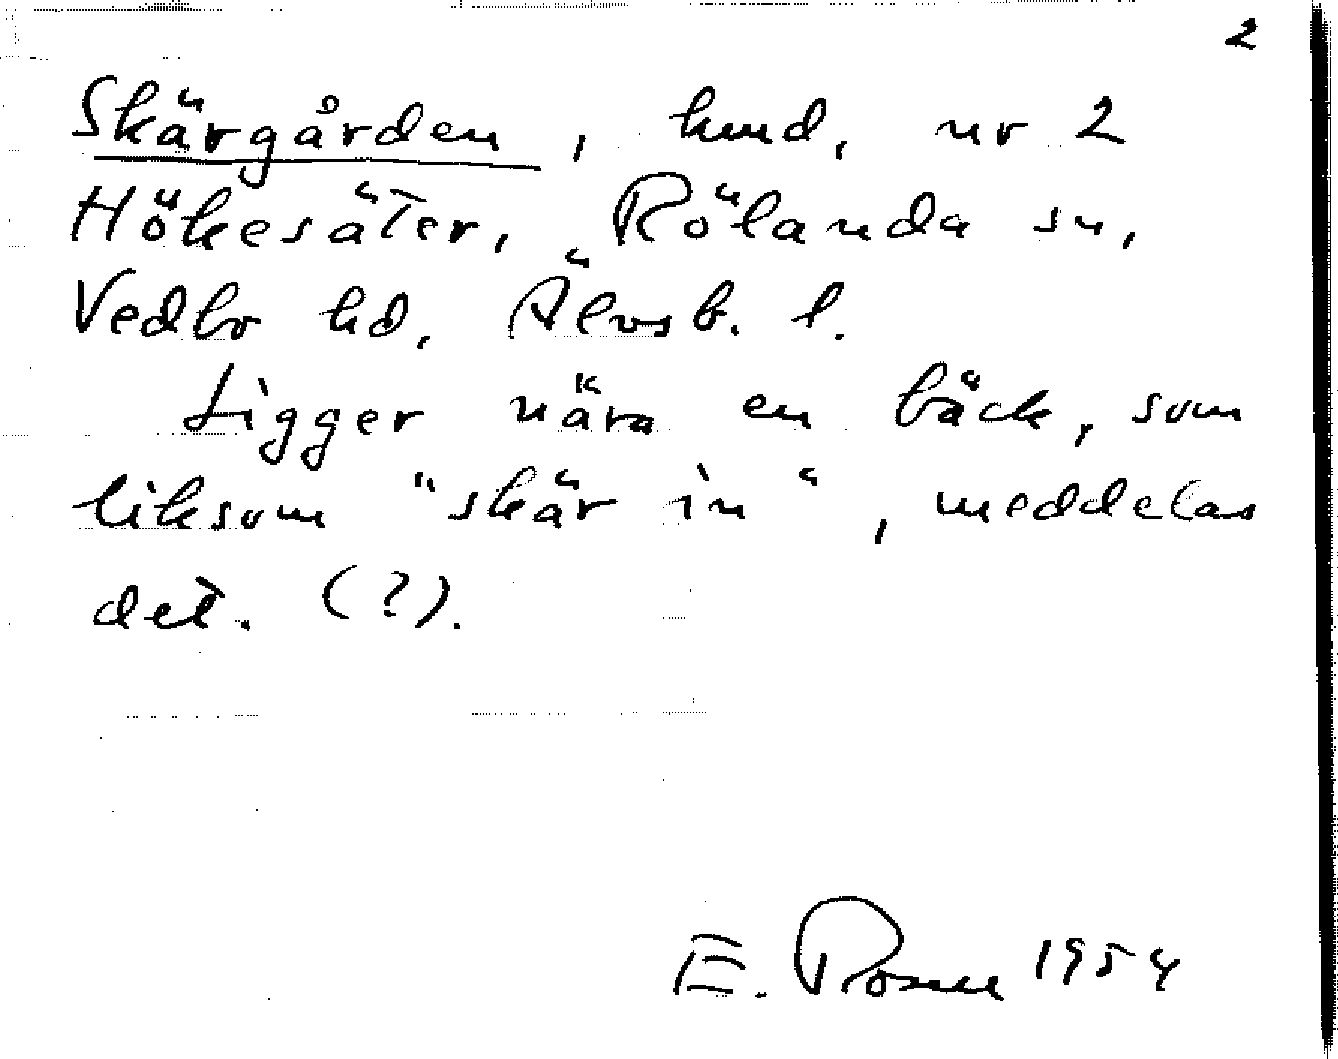 2
Skärgården, hmd, nr 2
Hökesäter, Rölanda sn,
Vedbo hd, Älvsb. l.
Ligger nära en bäck, som
liksom "skär in", meddelas
det. (?).
E. Rosen 1954